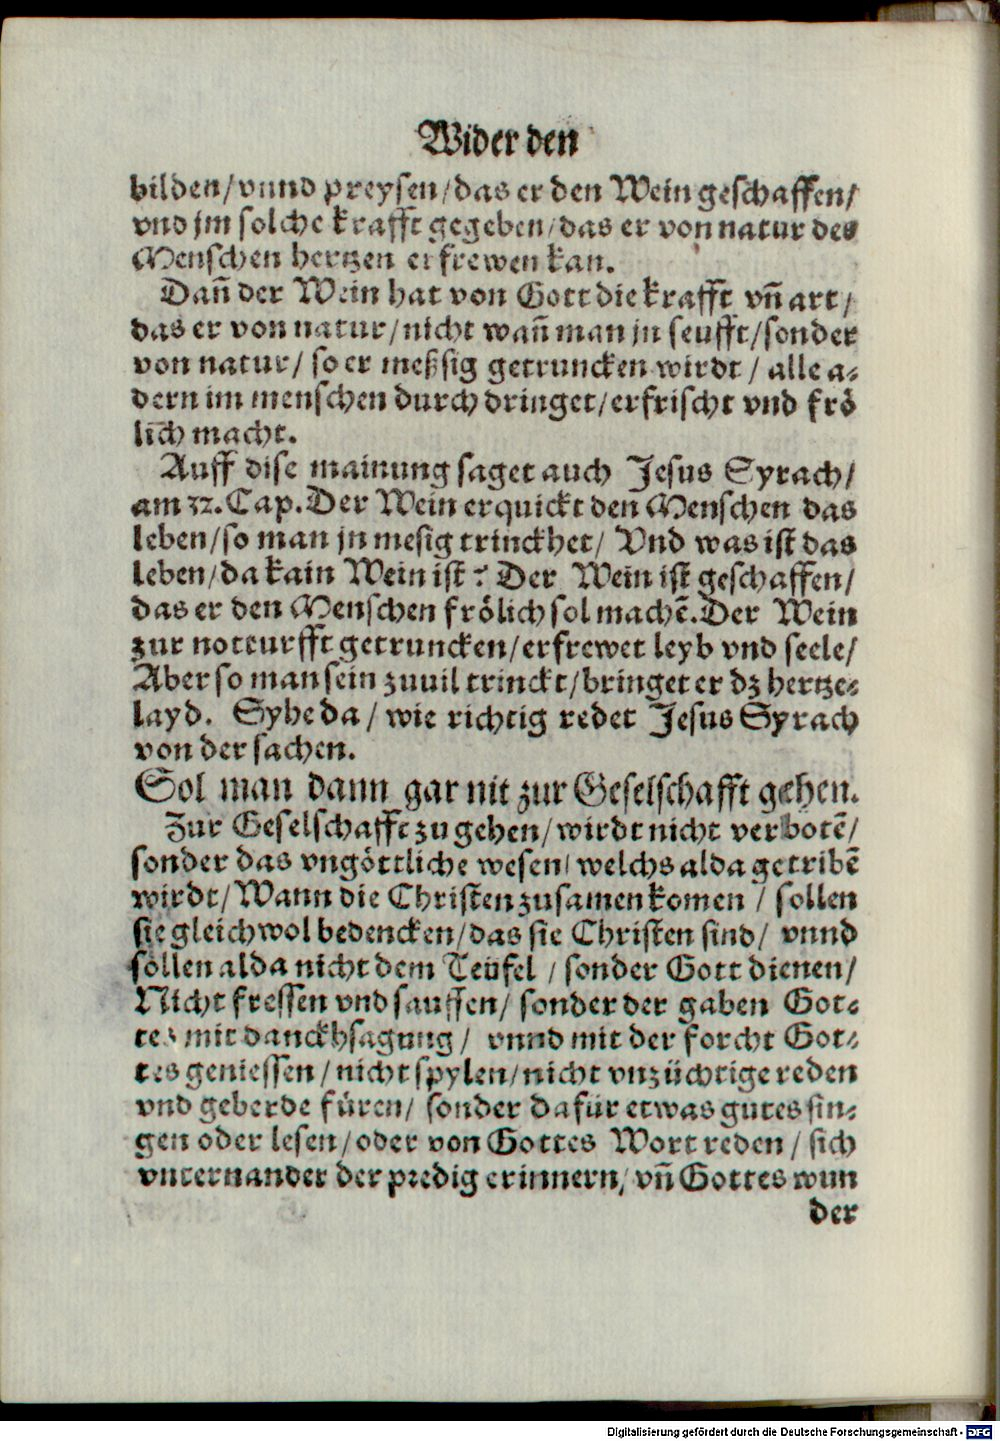 Wider den
bilden/vnnd preysen/das er den Wein geschaffen/
vnd jm solche krafft gegeben/das er von natur des
Menschen hertzen erfrewen kan.
Dañ der Wein hat von Gott die krafft vñ art/
das er von natur/nicht wañ man jn seufft/sonder
von natur/ so er meßsig getruncken wirdt/ alle a⸗
dern im menschen durch dringet/erfrischt vnd frö
lich macht.
Auff dise mainung saget auch Jesus Syrach/
am 32. Cap. Der Wein erquickt den Menschen das
leben/so man jn mesig trinckhet/ Vnd was ist das
leben/da kain Wein ist? Der Wein ist geschaffen/
das er den Menschen frölich sol machẽ. Der Wein
zur notturfft getruncken/erfrewet leyb vnd seele/
Aber so man sein zuuil trinckt/bringet er dz hertze⸗
layd. Syhe da/ wie richtig redet Jesus Syrach
von der sachen.
Sol man dann gar nit zur Geselschafft gehen.
Zur Geselschafft zu gehen/wirdt nicht verbotẽ/
sonder das vngöttliche wesen/ welchs alda getribẽ
wirdt/ Wann die Christen zusamen komen / sollen
sie gleichwol bedencken/das sie Christen sind/ vnnd
söllen alda nicht dem Teüfel / sonder Gott dienen/
Nicht fressen vnd sauffen/ sonder der gaben Got⸗
tes mit danckhsagung/ vnnd mit der forcht Got⸗
tes geniessen/ nicht spylen/nicht vnzüchtige reden
vnd geberde füren/ sonder dafür etwas gutes sin⸗
gen oder lesen/oder von Gottes Wort reden/ sich
vnternander der predig erinnern/ vñ Gottes wun
der
Digitalisierung gefördert durch die Deutsche Forschungsgemeinschaft - DFG